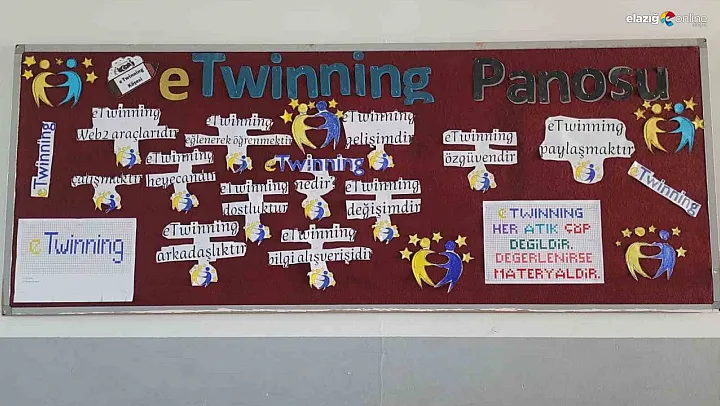 elazığ online
eTwinning Panosu
eTwinning
Köşesi
eTwinning
Web2 araçlarıdır
eTwinning
eğlenerek öğrenmektir
eTwinning
gelişimdir
eTwinning
özgüvendir
eTwinning
paylaşmaktır
eTwinning
eTwinning
çalışmaktır
eTwinning
heyecandır
eTwinning
nedir?
eTwinning
dostluktur
eTwinning
değişimdir
eTwinning
eTwinning
arkadaşlıktır
eTwinning
bilgi alışverişidir
eTwinning
eTWINNING
HER ATIK ÇÖP
DEĞİLDİR.
DEĞERLENİRSE
MATERYALDİR.